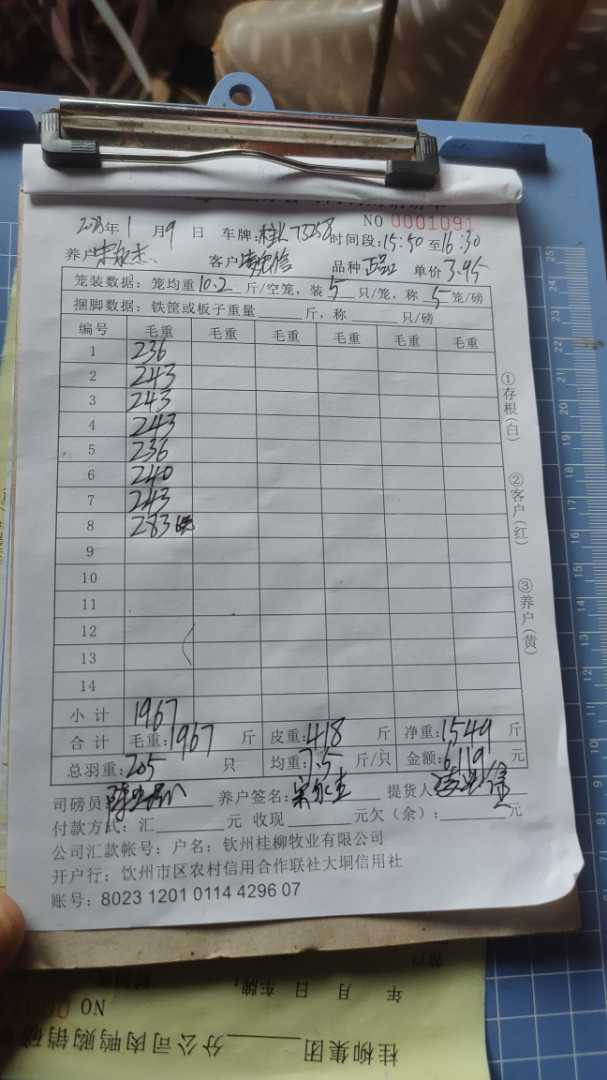 NO 0001091
2023年1月9日 车牌: 桂L73258 时间段:15:50至16:30
养户 客户 信 品种 正品 单价 3.95
笼装数据: 笼均重10.2斤/空笼, 装5只/笼, 称5笼/磅
捆脚数据: 铁筐或板子重量 斤, 称 只/磅
编号 毛重 毛重 毛重 毛重 毛重 毛重
1 236
2 243
3 243
4 243
5 236
6 240
7 243
8 283
9
10
11
12
13
14
小计 1967
合计 毛重:1967 斤 皮重:418 斤 净重:1549 斤
总羽重:205 只 均重:7.5 斤/只 金额:6119 元
司磅员 养户签名: 提货人
付款方式: 汇 元 收现 元欠(余): 元
公司汇款帐号: 户名: 钦州桂柳牧业有限公司
开户行: 钦州市区农村信用合作联社大垌信用社
账号: 8023 1201 0114 4296 07
①存根(白)
②客户(红)
③养户(黄)
年 月 日 车牌:
NO
桂柳集团 分公司肉鸭购销